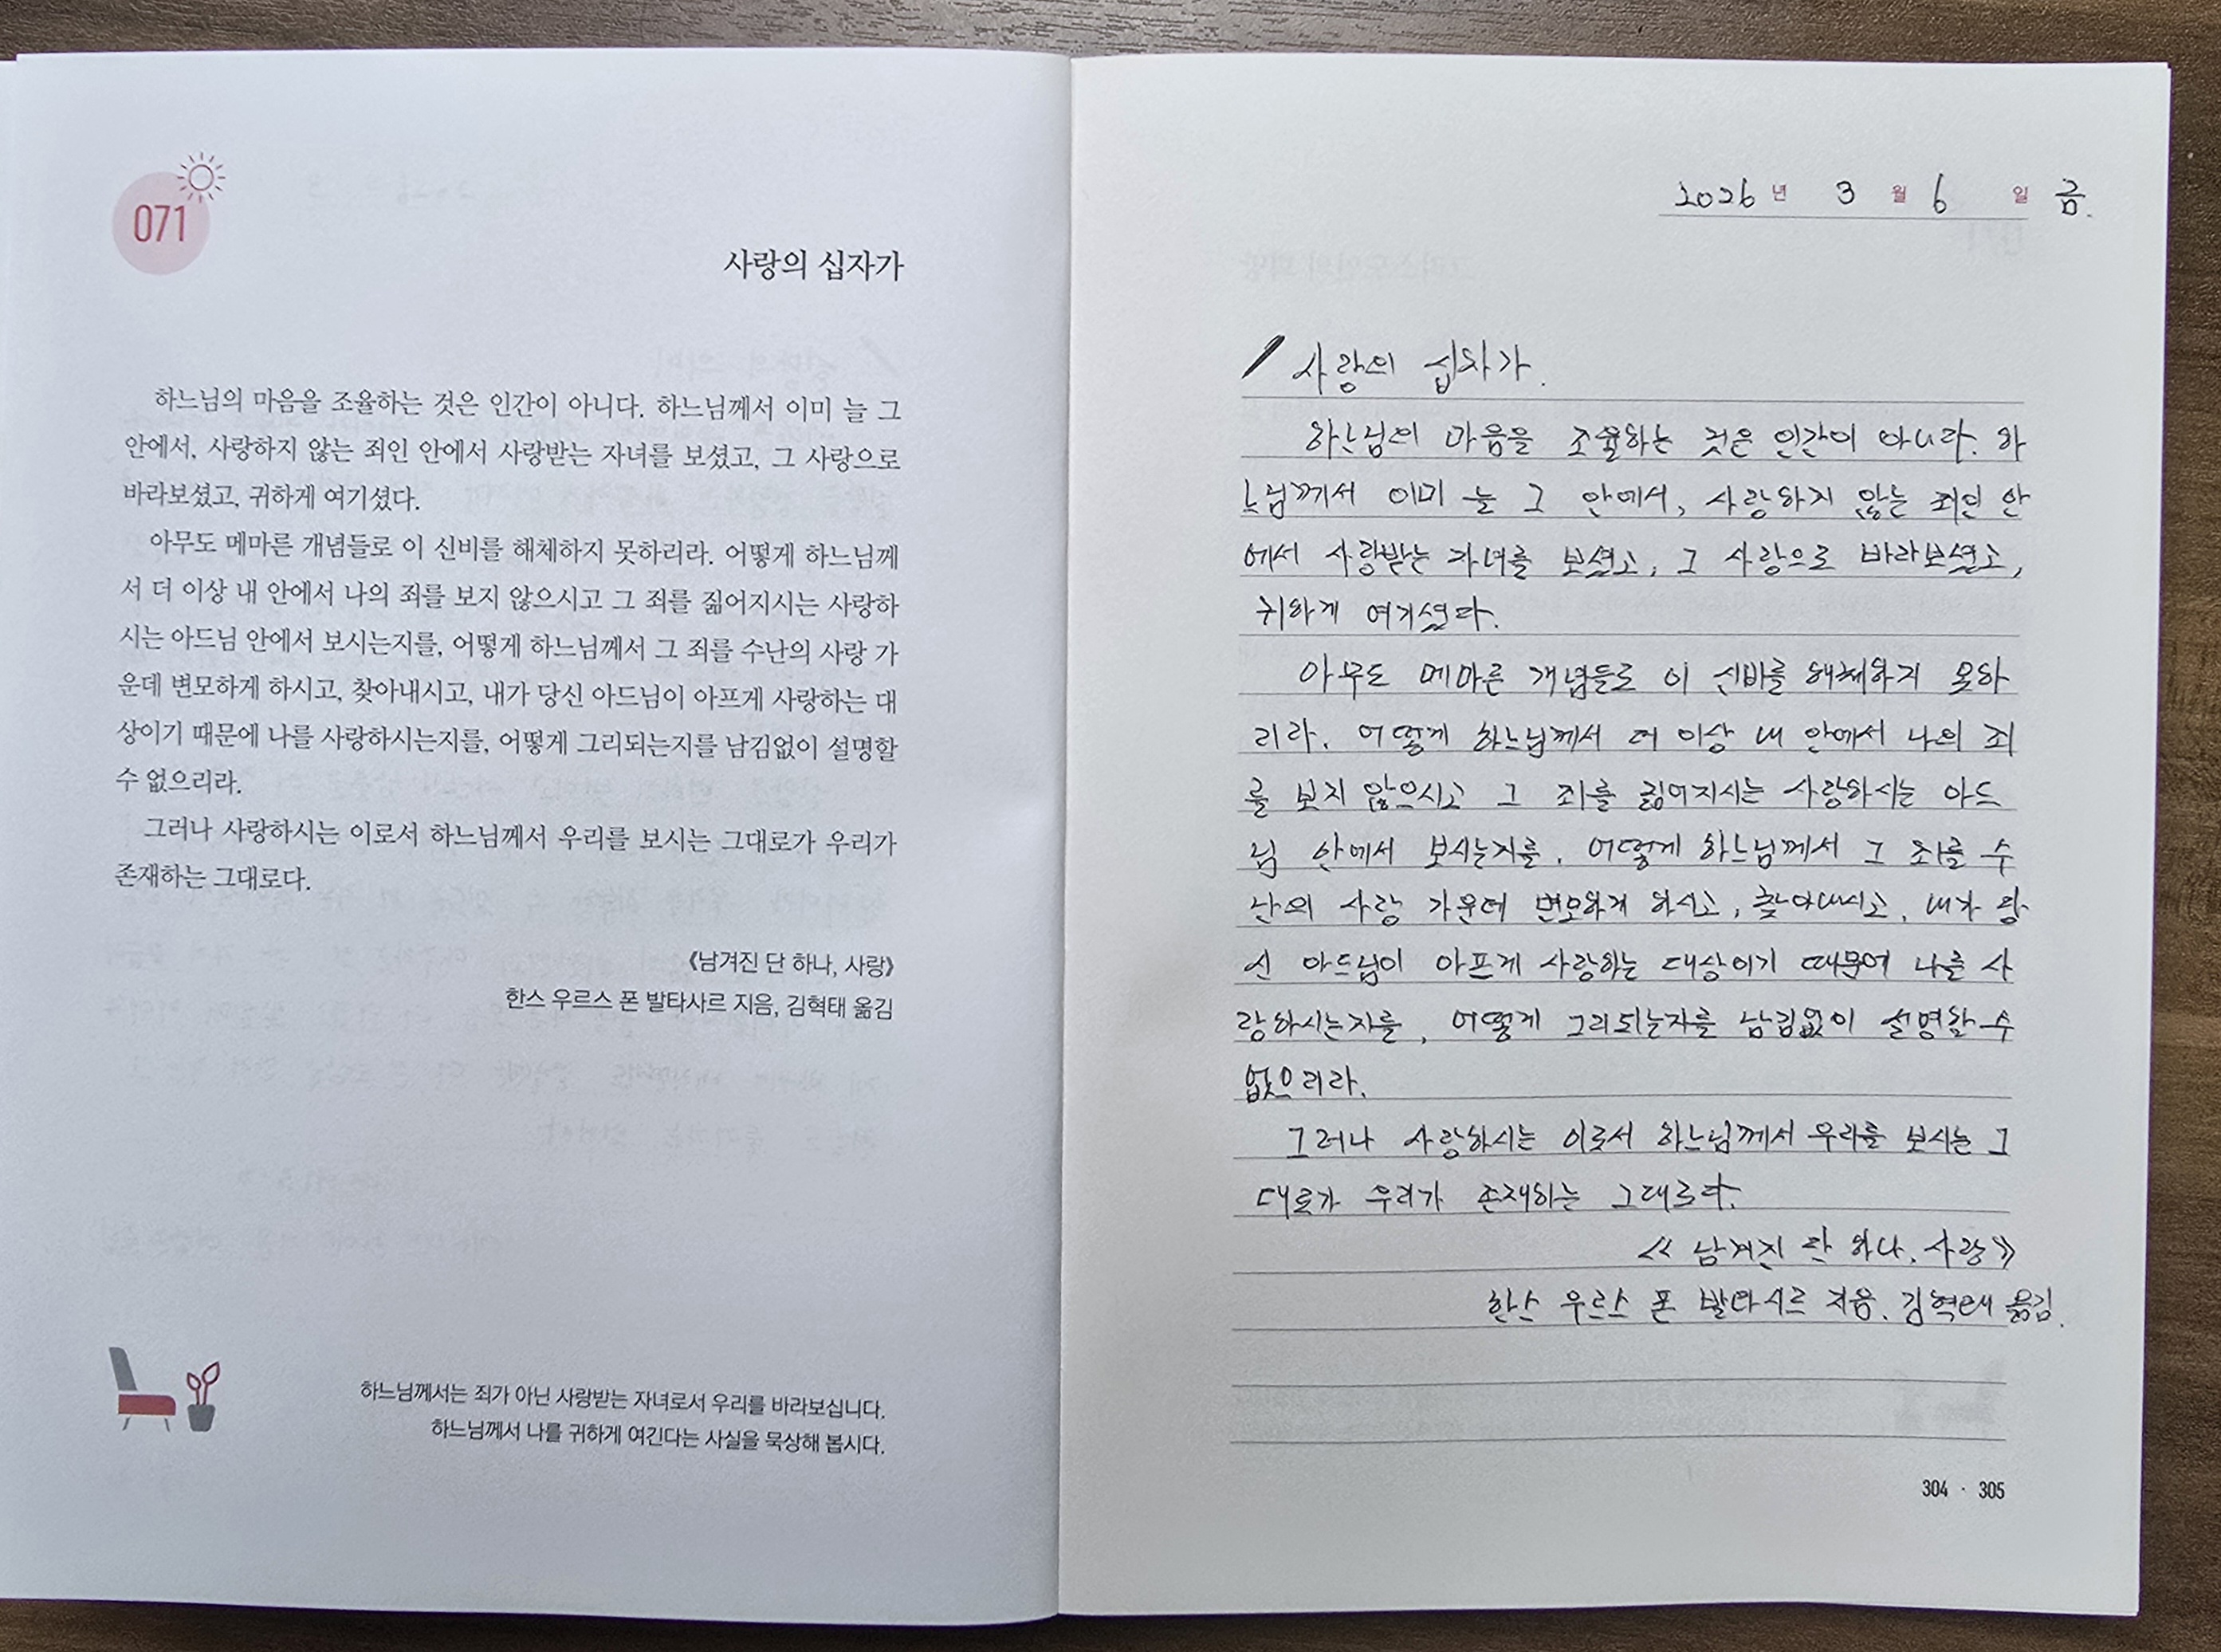 071
사랑의 십자가
하느님의 마음을 조율하는 것은 인간이 아니다. 하느님께서 이미 늘 그
안에서, 사랑하지 않는 죄인 안에서 사랑받는 자녀를 보셨고, 그 사랑으로
바라보셨고, 귀하게 여기셨다.
아무도 메마른 개념들로 이 신비를 해체하지 못하리라. 어떻게 하느님께
서 더 이상 내 안에서 나의 죄를 보지 않으시고 그 죄를 짊어지시는 사랑하
시는 아드님 안에서 보시는지를, 어떻게 하느님께서 그 죄를 수난의 사랑 가
운데 변모하게 하시고, 찾아내시고, 내가 당신 아드님이 아프게 사랑하는 대
상이기 때문에 나를 사랑하시는지를, 어떻게 그리되는지를 남김없이 설명할
수 없으리라.
그러나 사랑하시는 이로서 하느님께서 우리를 보시는 그대로가 우리가
존재하는 그대로다.
《남겨진 단 하나, 사랑》
한스 우르스 폰 발타사르 지음, 김혁태 옮김
하느님께서는 죄가 아닌 사랑받는 자녀로서 우리를 바라보십니다.
하느님께서 나를 귀하게 여긴다는 사실을 묵상해 봅시다.
2026 년 3 월 6 일 금.
사랑의 십자가.
하느님의 마음을 조율하는 것은 인간이 아니다. 하
느님께서 이미 늘 그 안에서, 사랑하지 않는 죄인 안
에서 사랑받는 자녀를 보셨고, 그 사랑으로 바라보셨고,
귀하게 여기셨다.
아무도 메마른 개념들로 이 신비를 해체하지 못하
리라. 어떻게 하느님께서 더 이상 내 안에서 나의 죄
를 보지 않으시고 그 죄를 짊어지시는 사랑하시는 아드
님 안에서 보시는지를, 어떻게 하느님께서 그 죄를 수
난의 사랑 가운데 변모하게 하시고, 찾아내시고, 내가 당
신 아드님이 아프게 사랑하는 대상이기 때문에 나를 사
랑하시는지를, 어떻게 그리되는지를 남김없이 설명할 수
없으리라.
그러나 사랑하시는 이로서 하느님께서 우리를 보시는 그
대로가 우리가 존재하는 그대로다.
《남겨진 단 하나, 사랑》
한스 우르스 폰 발타사르 지음, 김혁태 옮김.
304 · 305